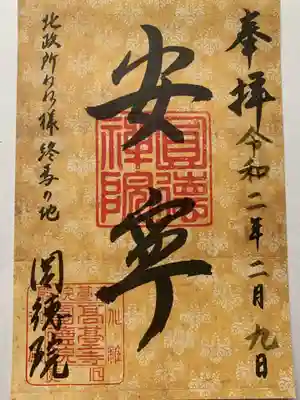 奉拝 令和二年二月九日
安寧
圓德禅院
北政所ねね様終焉の地
圓徳院